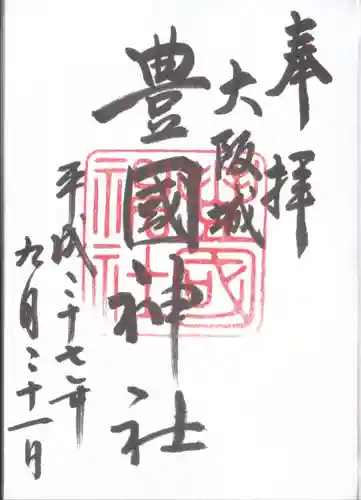 奉拝
大阪城
豊國神社
平成二十七年
九月二十一日
豊國
神社